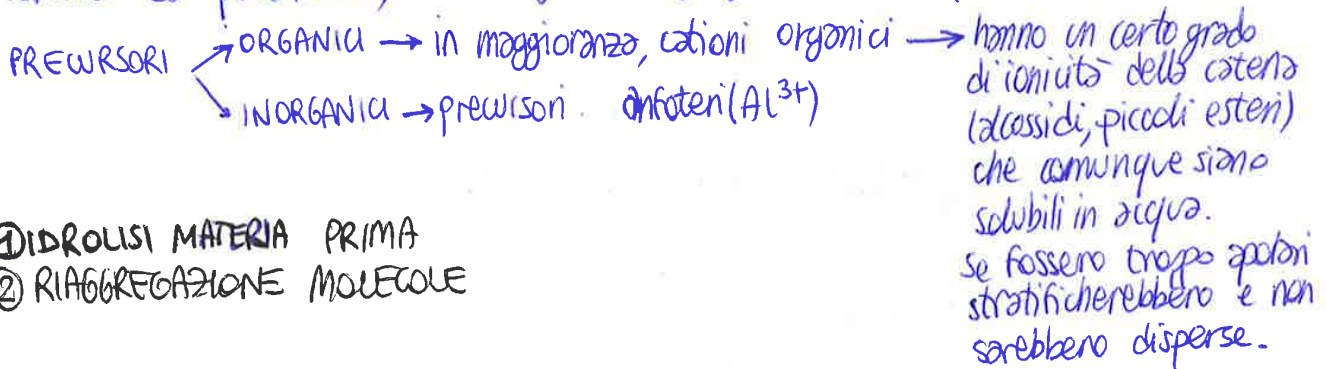 PRECURSORI
ORGANICI → in maggioranza, cationi organici → hanno un certo grado
di ionicità della catena
(alcossidi, piccoli esteri)
che comunque siano
solubili in acqua.
se fossero troppo apolari
stratificherebbero e non
sarebbero disperse.
INORGANICI → precursori anfoteri (Al³⁺)
① IDROLISI MATERIA PRIMA
② RIAGGREGAZIONE MOLECOLE